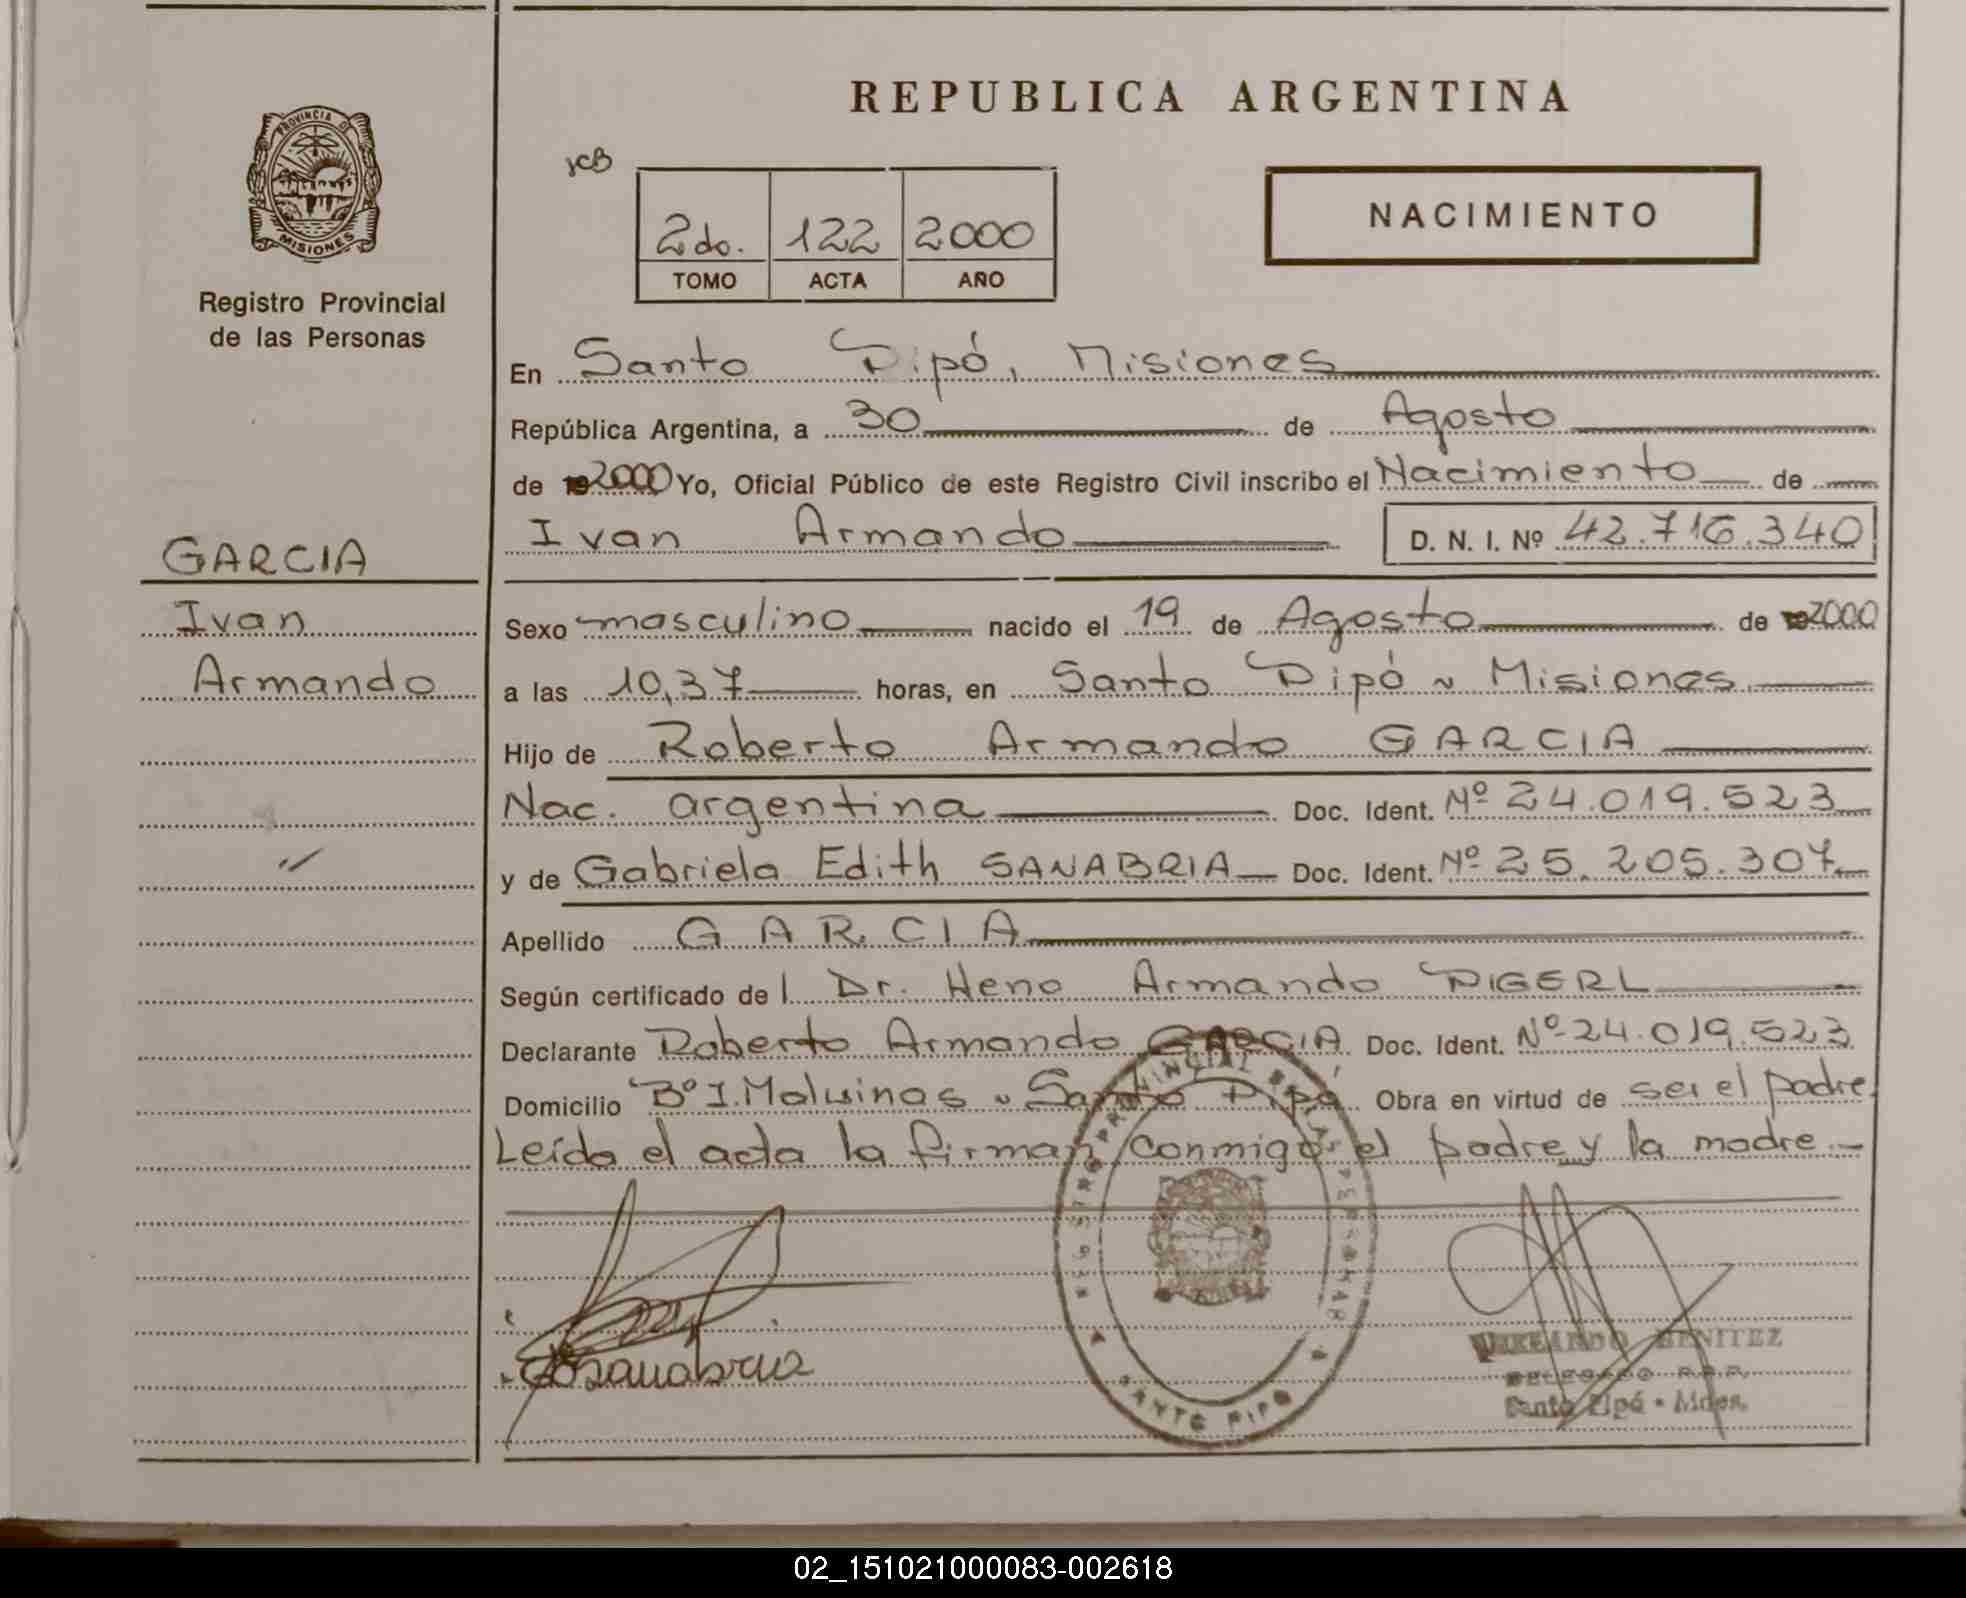 REPUBLICA ARGENTINA
PROVINCIA DE
MISIONES
Registro Provincial
de las Personas
JCB
2do. 122 2000
TOMO ACTA AÑO
NACIMIENTO
En Santo Pipó, Misiones
República Argentina, a 30 de Agosto
de 2000 Yo, Oficial Público de este Registro Civil inscribo el Nacimiento de
Ivan Armando D. N. I. Nº 42.716.340
GARCIA
Ivan
Armando
Sexo masculino nacido el 19 de Agosto de 2000
a las 10,37 horas, en Santo Pipó ~ Misiones
Hijo de Roberto Armando GARCIA
Nac. argentina Doc. Ident. Nº 24.019.523
y de Gabriela Edith SANABRIA Doc. Ident. Nº 25.205.307
Apellido GARCIA
Según certificado del Dr. Heno Armando DIGERL
Declarante Roberto Armando GARCIA Doc. Ident. Nº 24.019.523
Domicilio Bº I. Malvinas ~ Santo Pipó Obra en virtud de ser el padre.
Leída el acta la firman conmigo el padre y la madre.-
REGISTRO PROVINCIAL DE LAS PERSONAS
SANTO PIPO
Sanabria
BENITEZ
DELEGADO R.P.P.
Santo Pipó - Mnes.
02_151021000083-002618